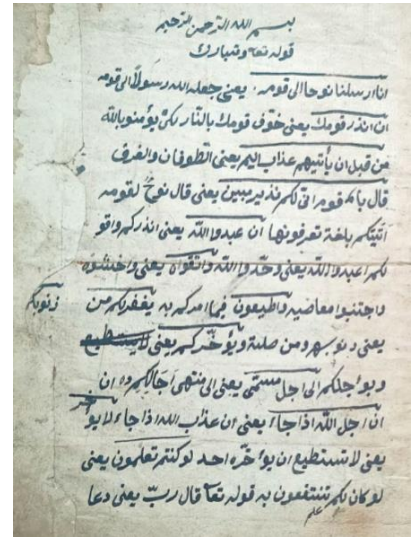 بسم الله الرحمن الرحيم
قوله تعا وتبارك
انا ارسلنا نوحا الى قومه. يعنى جعله الله رسولا الى قومه
ان انذر قومك يعنى خوّف قومك بالنار لكى يؤمنو بالله
من قبل ان يأتيهم عذاب اليم يعنى الطوفان والغرق
قال ياقوم انى لكم نذير مبين يعنى قال نوح لقومه
اتيتكم بلغة تعرفونها ان عبدوا الله يعنى انذركم واقو
لكم اعبدوا الله يعنى وحّدوا الله واتقواه يعنى واخشوه
واجتنبوا معاصيه واطيعون فيما امركم به يغفر لكم من ذنوبكم
يعنى ذنوبهم ومن صلة ويؤخّركم يعنى لا يستطيع
ويواجلكم الى اجل مسمّى يعنى الى منتهى اجالكم ان
ان اجل الله اذا جاء يعنى ان عذاب الله اذا جاء لا يؤخر
يعنى لا تستطيع ان يؤاخّره احد لو كنتم تعلمون يعنى
لو كان لكم علم تنتفعون به قوله تعا قال ربّ يعنى دعا